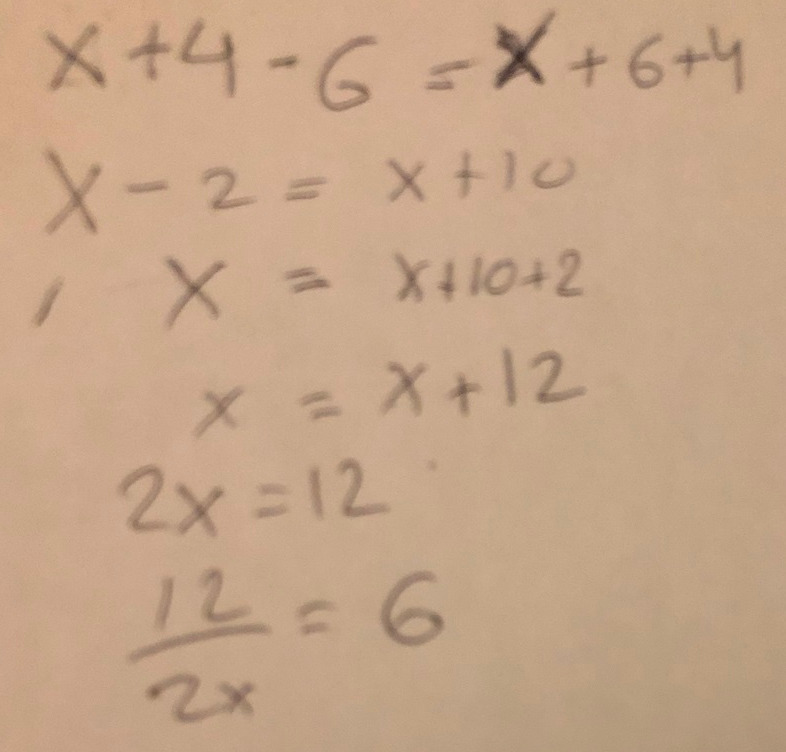 x+4-6=x+6+4
x-2=x+10
x=x+10+2
x=x+12
2x=12
12/2x=6